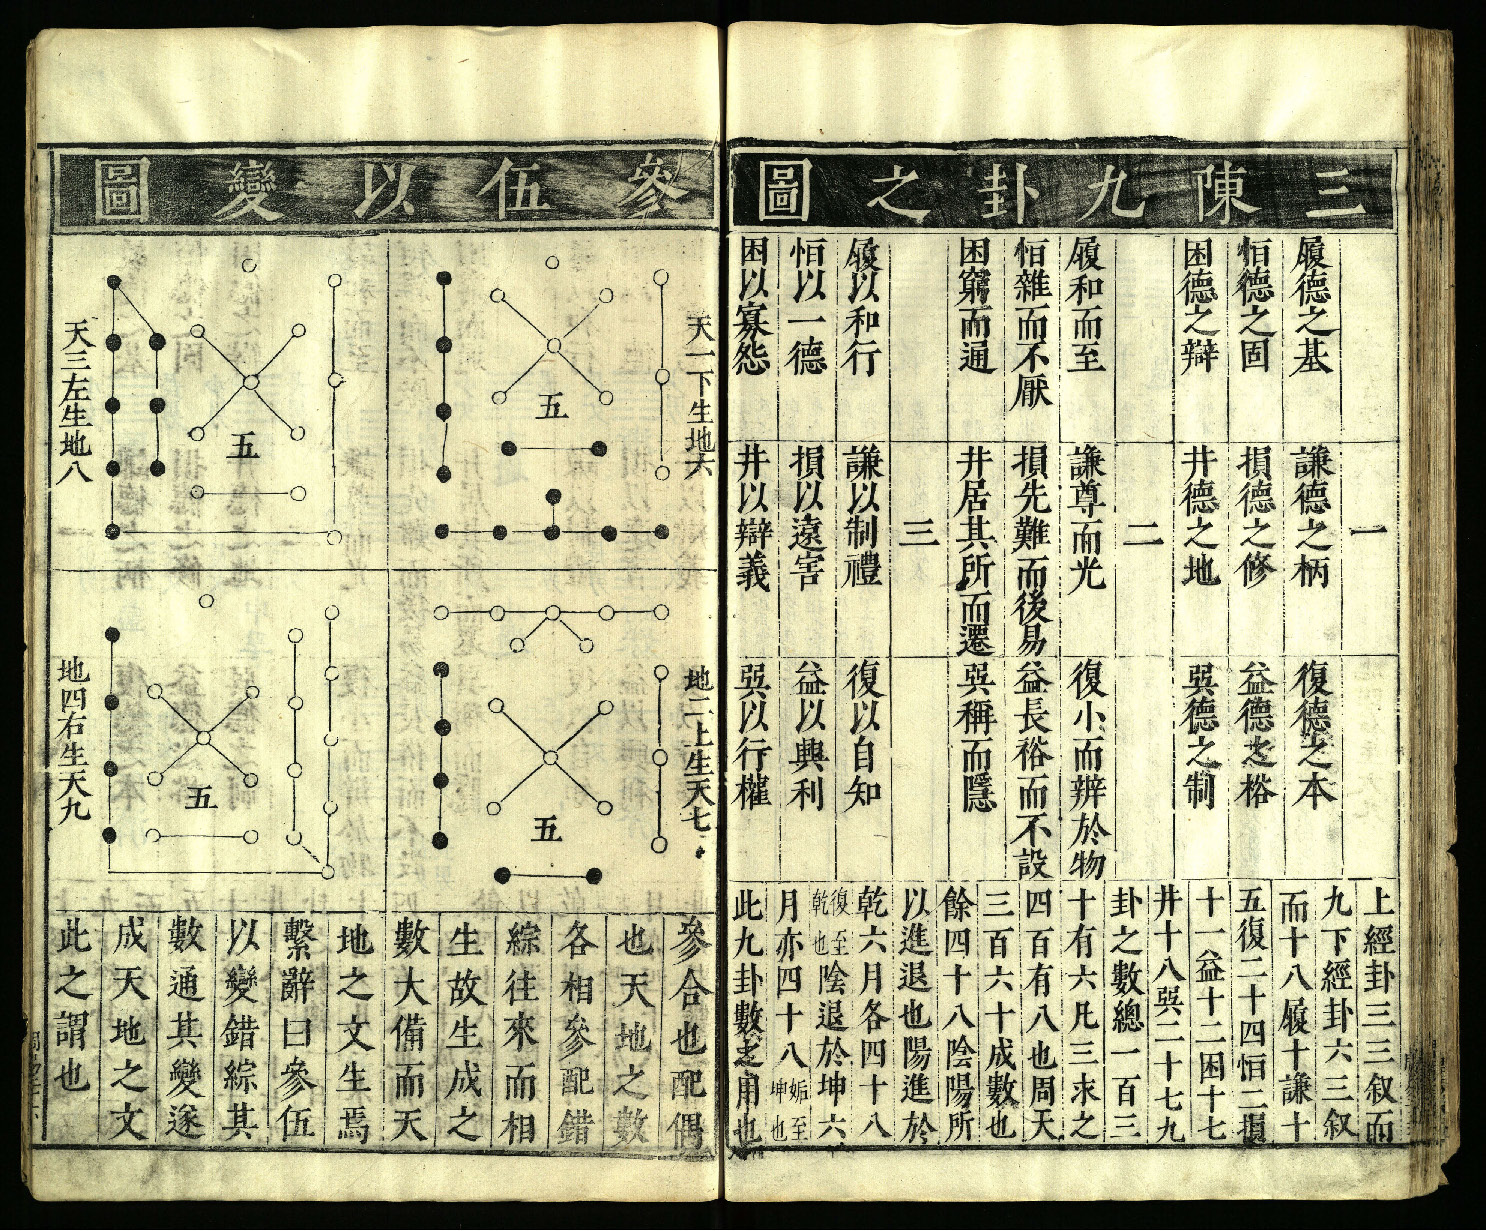 三陳九卦之圖
一
履德之基
謙德之柄
復德之本
恒德之固
損德之修
益德之裕
困德之辯
井德之地
巽德之制
二
履和而至
謙尊而光
復小而辨於物
恒雜而不厭
損先難而後易
益長裕而不設
困窮而通
井居其所而遷
巽稱而隱
三
履以和行
謙以制禮
復以自知
恒以一德
損以遠害
益以興利
困以寡怨
井以辯義
巽以行權
上經卦三三叙而
九下經卦六三叙
而十八履十謙十
五復二十四恒二損
十一益十二困十七
井十八巽二十七九
卦之數總一百三
十有六凡三求之
四百有八也周天
三百六十成數也
餘四十八陰陽所
以進退也陽進於
乾六月各四十八
復至乾也陰退於坤六
月亦四十八姤至坤也
此九卦數之用也
參伍以變圖
天一下生地六
五
天三左生地八
五
地二上生天七
五
地四右生天九
五
參合也配偶
也天地之數
各相參配錯
綜往來而相
生故生成之
數大備而天
地之文生焉
繫辭曰參伍
以變錯綜其
數通其變遂
成天地之文
此之謂也